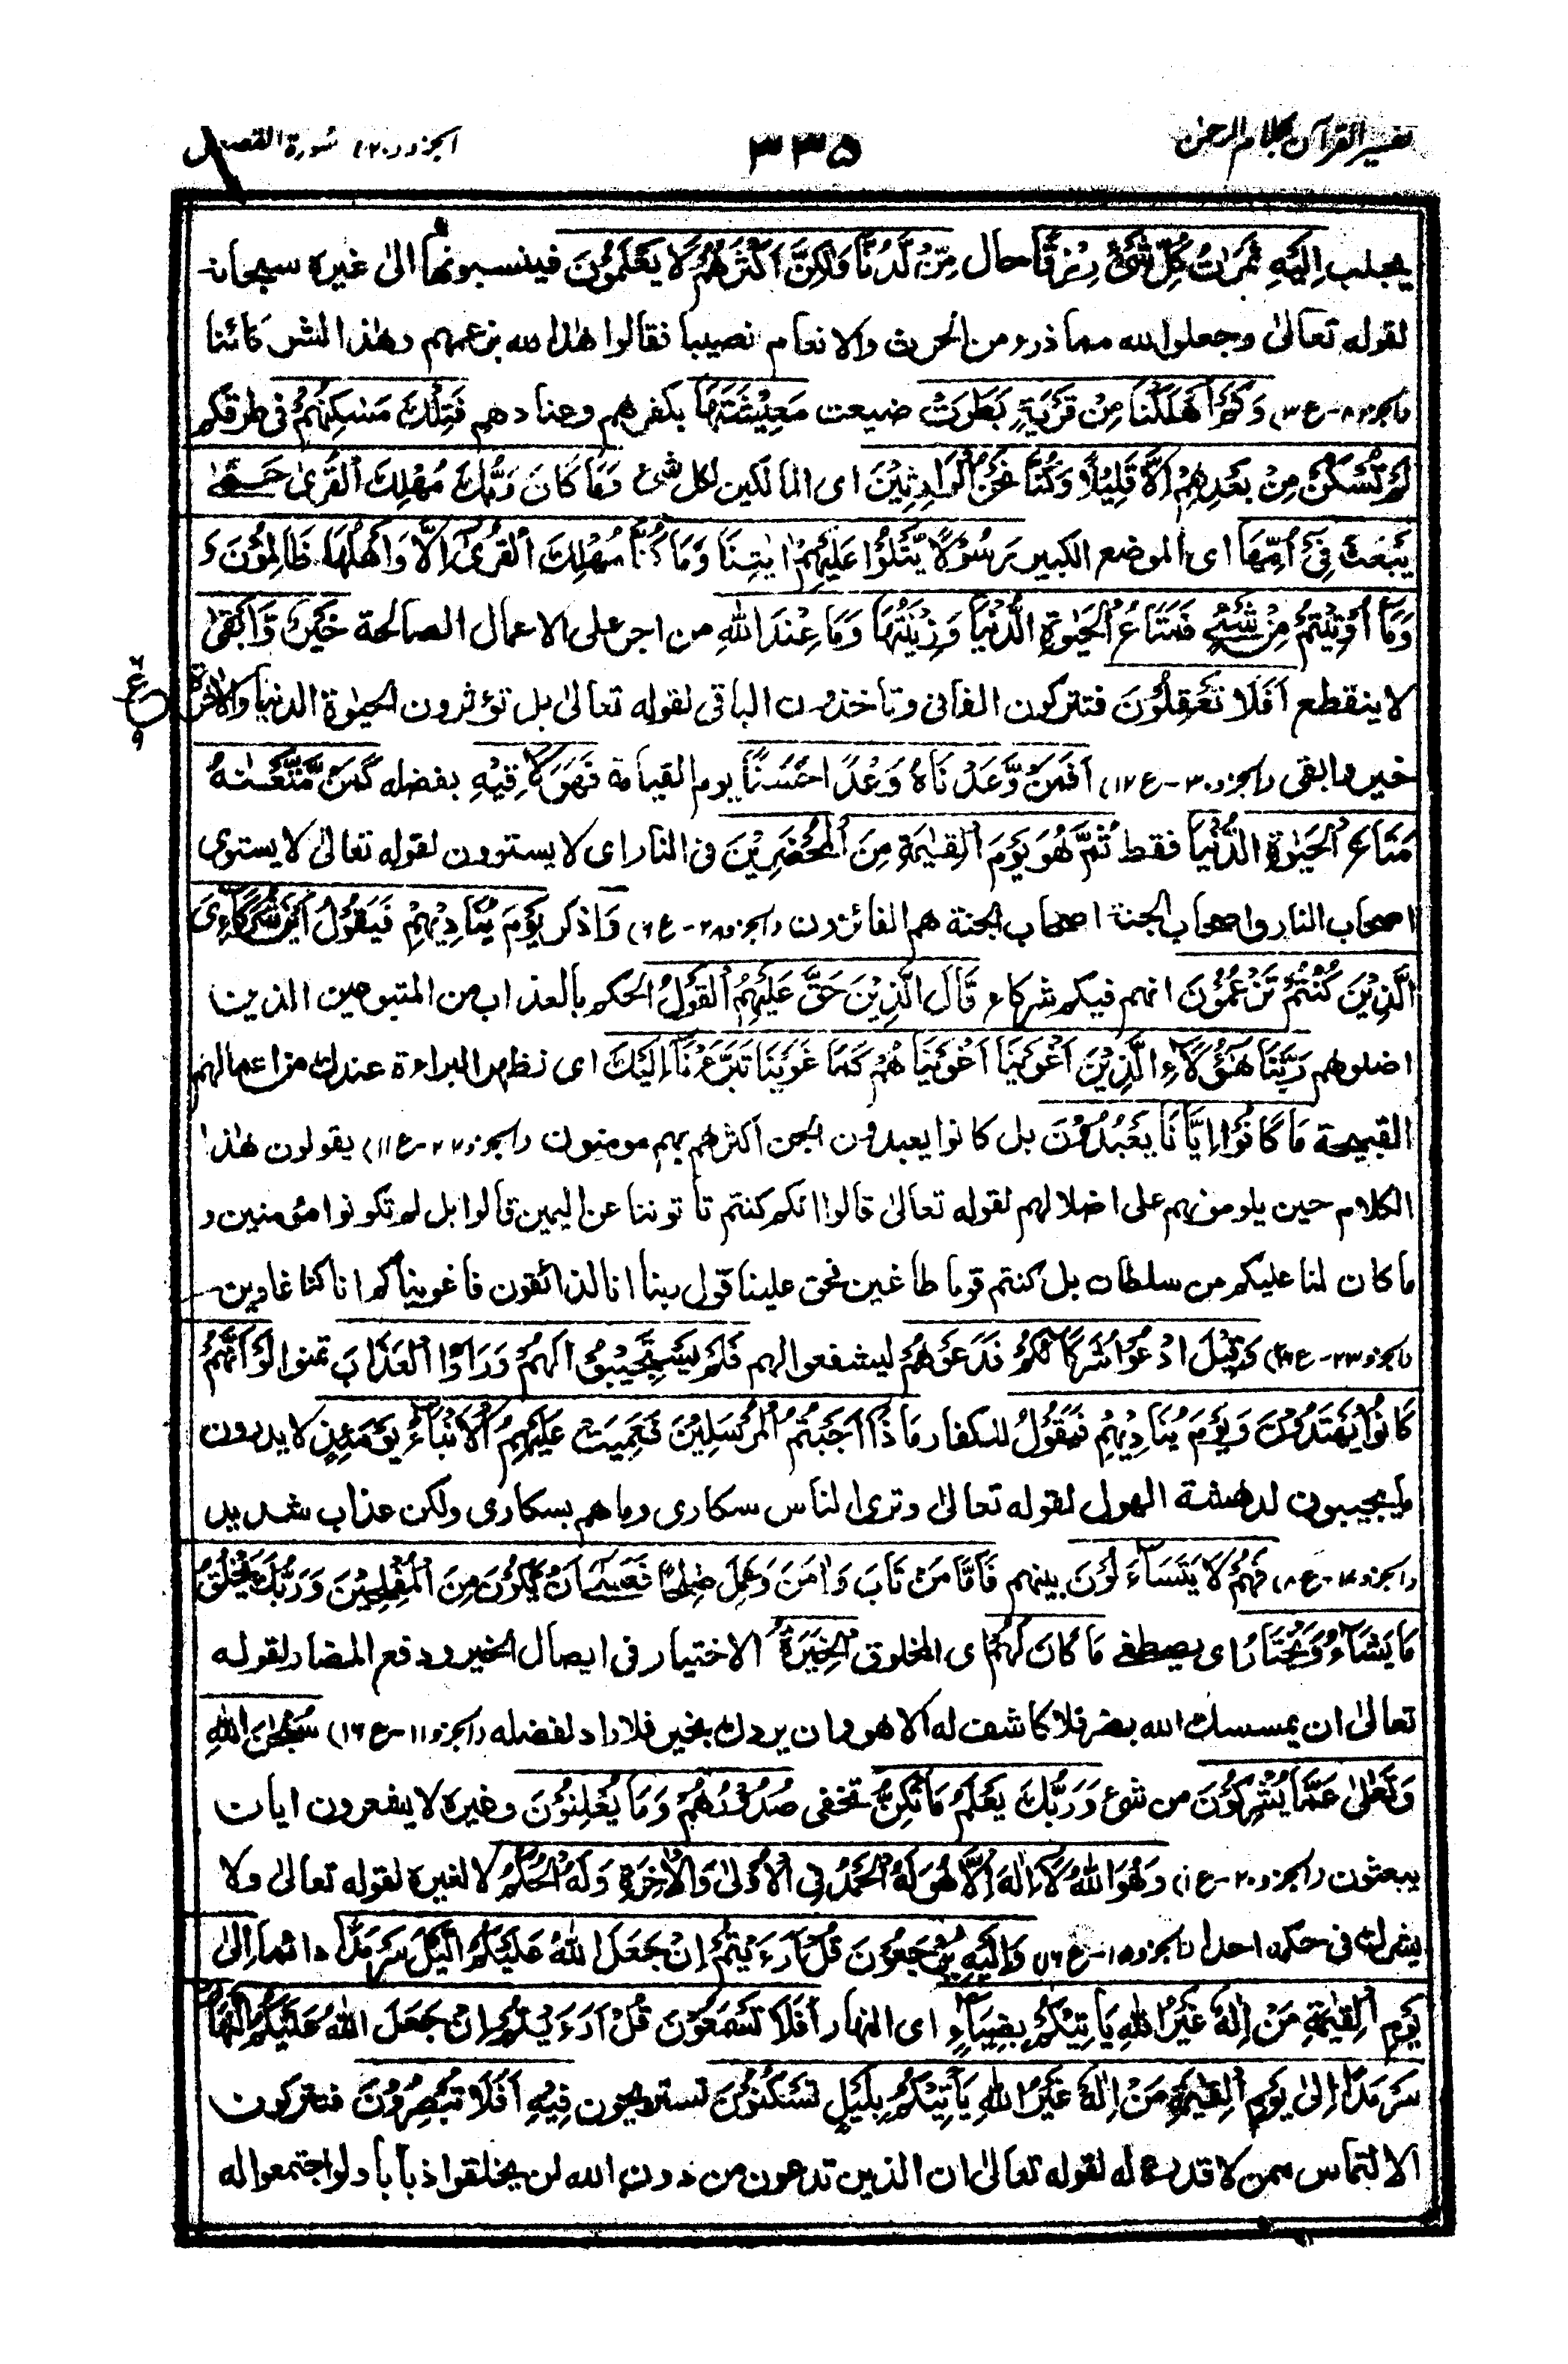 تفسير القرآن بكلام الرحمن ٣٣٥ الجزو (٢٠) سُورة القصص
يجلب اِلَيْهِ ثَمَرَاتُ كُلِّ شَىْءٍ رِزْقًا حال مِّنْ لَّدُنَّا وَلٰكِنَّ اَكْثَرَهُمْ لَا يَعْلَمُوْنَ فينسبونها الىٰ غيره سبحانه
لقوله تعالىٰ وجعلوا لله مما ذرء من الحرث والانعام نصيبا فقالوا هٰذا لله بزعمهم وهٰذا لشركائنا
(الجزو ٨- ع ٣) وَكَمْ اَهْلَكْنَا مِنْ قَرْيَةٍ بَطِرَتْ ضيعت مَعِيْشَتَهَا بكفرهم وعنادهم فَتِلْكَ مَسٰكِنُهُمْ فى طرقكم
لَمْ تُسْكَنْ مِنْ بَعْدِهِمْ اِلَّا قَلِيْلًا وَكُنَّا نَحْنُ الْوَارِثِيْنَ اى المالكين لكل شئ وَمَا كَانَ رَبُّكَ مُهْلِكَ الْقُرىٰ حَتّٰى
يَبْعَثَ فِىْ اُمِّهَا اى الموضع الكبير رَسُوْلًا يَّتْلُوْا عَلَيْهِمْ اٰيٰتِنَا وَمَا كُنَّا مُهْلِكِ الْقُرىٰ اِلَّا وَاَهْلُهَا ظَالِمُوْنَ
وَمَا اُوْتِيْتُمْ مِنْ شَىْءٍ فَمَتَاعُ الْحَيٰوةِ الدُّنْيَا وَزِيْنَتُهَا وَمَا عِنْدَ اللهِ من اجر على الاعمال الصالحة خَيْرٌ وَّاَبْقىٰ
لا ينقطع اَفَلَا تَعْقِلُوْنَ فتتركون الفانى وتأخذون الباقى لقوله تعالىٰ بل تؤثرون الحيٰوة الدنيا والاٰخرة
خير وابقى (الجزو ٣٠- ع ١٢) اَفَمَنْ وَّعَدْنَاهُ وَعْدًا حَسَنًا يوم القيامة فَهُوَ لَاقِيْهِ بفضله كَمَنْ مَّتَّعْنٰهُ
مَتَاعَ الْحَيٰوةِ الدُّنْيَا فقط ثُمَّ هُوَ يَوْمَ الْقِيٰمَةِ مِنَ الْمُحْضَرِيْنَ فى النار اى لا يستوون لقوله تعالىٰ لا يستوى
اصحاب النار واصحاب الجنة اصحاب الجنة هم الفائزون (الجزو ٢٨- ع ٦) وَاذكر يَوْمَ يُنَادِيْهِمْ فَيَقُوْلُ اَيْنَ شُرَكَآءِىَ
الَّذِيْنَ كُنْتُمْ تَزْعُمُوْنَ انهم فيكم شركاء قَالَ الَّذِيْنَ حَقَّ عَلَيْهِمُ الْقَوْلُ الحكم بالعذاب من المتبوعين الذين
اضلوهم رَبَّنَا هٰؤُلَآءِ الَّذِيْنَ اَغْوَيْنَا اَغْوَيْنَاهُمْ كَمَا غَوَيْنَا تَبَرَّءْنَا اِلَيْكَ اى نظهر البراءة عندك من اعمالهم
القبيحة مَا كَانُوْا اِيَّانَا يَعْبُدُوْنَ بل كانوا يعبدون الجن اكثرهم بهم مومنون (الجزو ٢٢- ع ١١) يقولون هٰذا
الكلام حين يلومونهم على اضلالهم لقوله تعالىٰ قالوا انكم كنتم تأتوننا عن اليمين قالوا بل لم تكونوا مؤمنين و
ما كان لنا عليكم من سلطان بل كنتم قوما طاغين فحق علينا قول ربنا انا لذائقون فاغويناكم انا كنا غاوين
(الجزو ٢٣- ع ٦) وَقِيْلَ ادْعُوْا شُرَكَآءَكُمْ فَدَعَوْهُمْ ليشفعوا لهم فَلَمْ يَسْتَجِيْبُوْا لَهُمْ وَرَاَوُا الْعَذَابَ تمنوا لَوْ اَنَّهُمْ
كَانُوْا يَهْتَدُوْنَ وَيَوْمَ يُنَادِيْهِمْ فَيَقُوْلُ للكفار مَاذَا اَجَبْتُمُ الْمُرْسَلِيْنَ فَعَمِيَتْ عَلَيْهِمُ الْاَنْبَآءُ يَوْمَئِذٍ لا يدرون
ما يجيبون لدهشة الهول لقوله تعالىٰ وترى الناس سكارى وما هم بسكارى ولكن عذاب شديد
(الجزو ١٧- ع ٨) فَهُمْ لَا يَتَسَآءَلُوْنَ بينهم فَاَمَّا مَنْ تَابَ وَاٰمَنَ وَعَمِلَ صٰلِحًا فَعَسٰى اَنْ يَّكُوْنَ مِنَ الْمُفْلِحِيْنَ وَرَبُّكَ يَخْلُقُ
مَا يَشَآءُ وَيَخْتَارُ اى يصطفى مَا كَانَ لَهُمُ اى المخلوق الْخِيَرَةُ الاختيار فى ايصال الخير ودفع المضار لقوله
تعالىٰ ان يمسسك الله بضر فلا كاشف له الا هو وان يردك بخير فلا راد لفضله (الجزو ١١- ع ١٦) سُبْحٰنَ اللهِ
وَتَعَالىٰ عَمَّا يُشْرِكُوْنَ من شئ وَرَبُّكَ يَعْلَمُ مَا تُكِنُّ تخفى صُدُوْرُهُمْ وَمَا يُعْلِنُوْنَ وغيره لا يشعرون ايان
يبعثون (الجزو ٢٠- ع ١) وَهُوَ اللهُ لَا اِلٰهَ اِلَّا هُوَ لَهُ الْحَمْدُ فِى الْاُوْلىٰ وَالْاٰخِرَةِ وَلَهُ الْحُكْمُ لا لغيره لقوله تعالىٰ ولا
يشرك فى حكمه احدا (الجزو ١٥- ع ١٦) وَاِلَيْهِ تُرْجَعُوْنَ قُلْ اَرَءَيْتُمْ اِنْ جَعَلَ اللهُ عَلَيْكُمُ الَّيْلَ سَرْمَدًا دائما اِلىٰ
يَوْمِ الْقِيٰمَةِ مَنْ اِلٰهٌ غَيْرُ اللهِ يَاْتِيْكُمْ بِضِيَآءٍ اى النهار اَفَلَا تَسْمَعُوْنَ قُلْ اَرَءَيْتُمْ اِنْ جَعَلَ اللهُ عَلَيْكُمُ النَّهَارَ
سَرْمَدًا اِلىٰ يَوْمِ الْقِيٰمَةِ مَنْ اِلٰهٌ غَيْرُ اللهِ يَاْتِيْكُمْ بِلَيْلٍ تَسْكُنُوْنَ تستريحون فِيْهِ اَفَلَا تُبْصِرُوْنَ فتتركون
الالتماس ممن لا قدرة له لقوله تعالىٰ ان الذين تدعون من دون الله لن يخلقوا ذبابا ولو اجتمعوا له